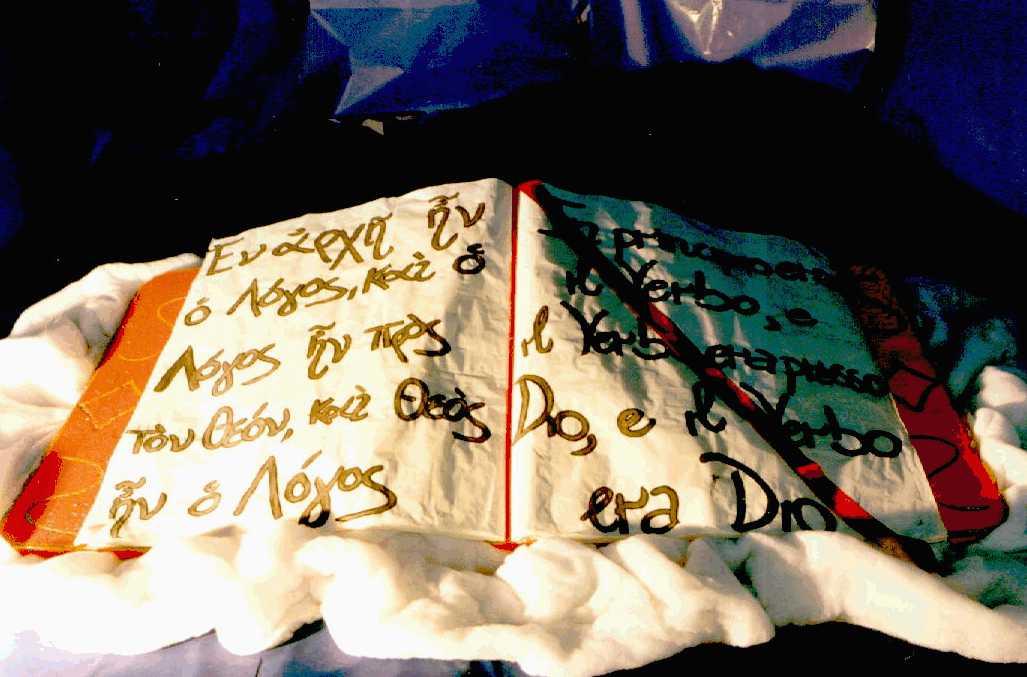 Εν ἀρχῇ ἦν
ὁ Λόγος, καὶ ὁ
Λόγος ἦν πρὸς
τὸν Θεόν, καὶ Θεὸς
ἦν ὁ Λόγος
In principio era
il Verbo, e
il Verbo era presso
Dio, e il Verbo
era Dio